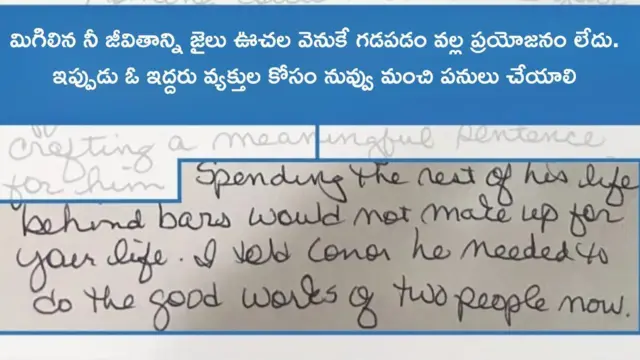 మిగిలిన నీ జీవితాన్ని జైలు ఊచల వెనుకే గడపడం వల్ల ప్రయోజనం లేదు.
ఇప్పుడు ఓ ఇద్దరు వ్యక్తుల కోసం నువ్వు మంచి పనులు చేయాలి
crafting a meaningful sentence
for him Spending the rest of his life
behind bars would not make up for
your life. I told Conor he needed to
do the good works of two people now.